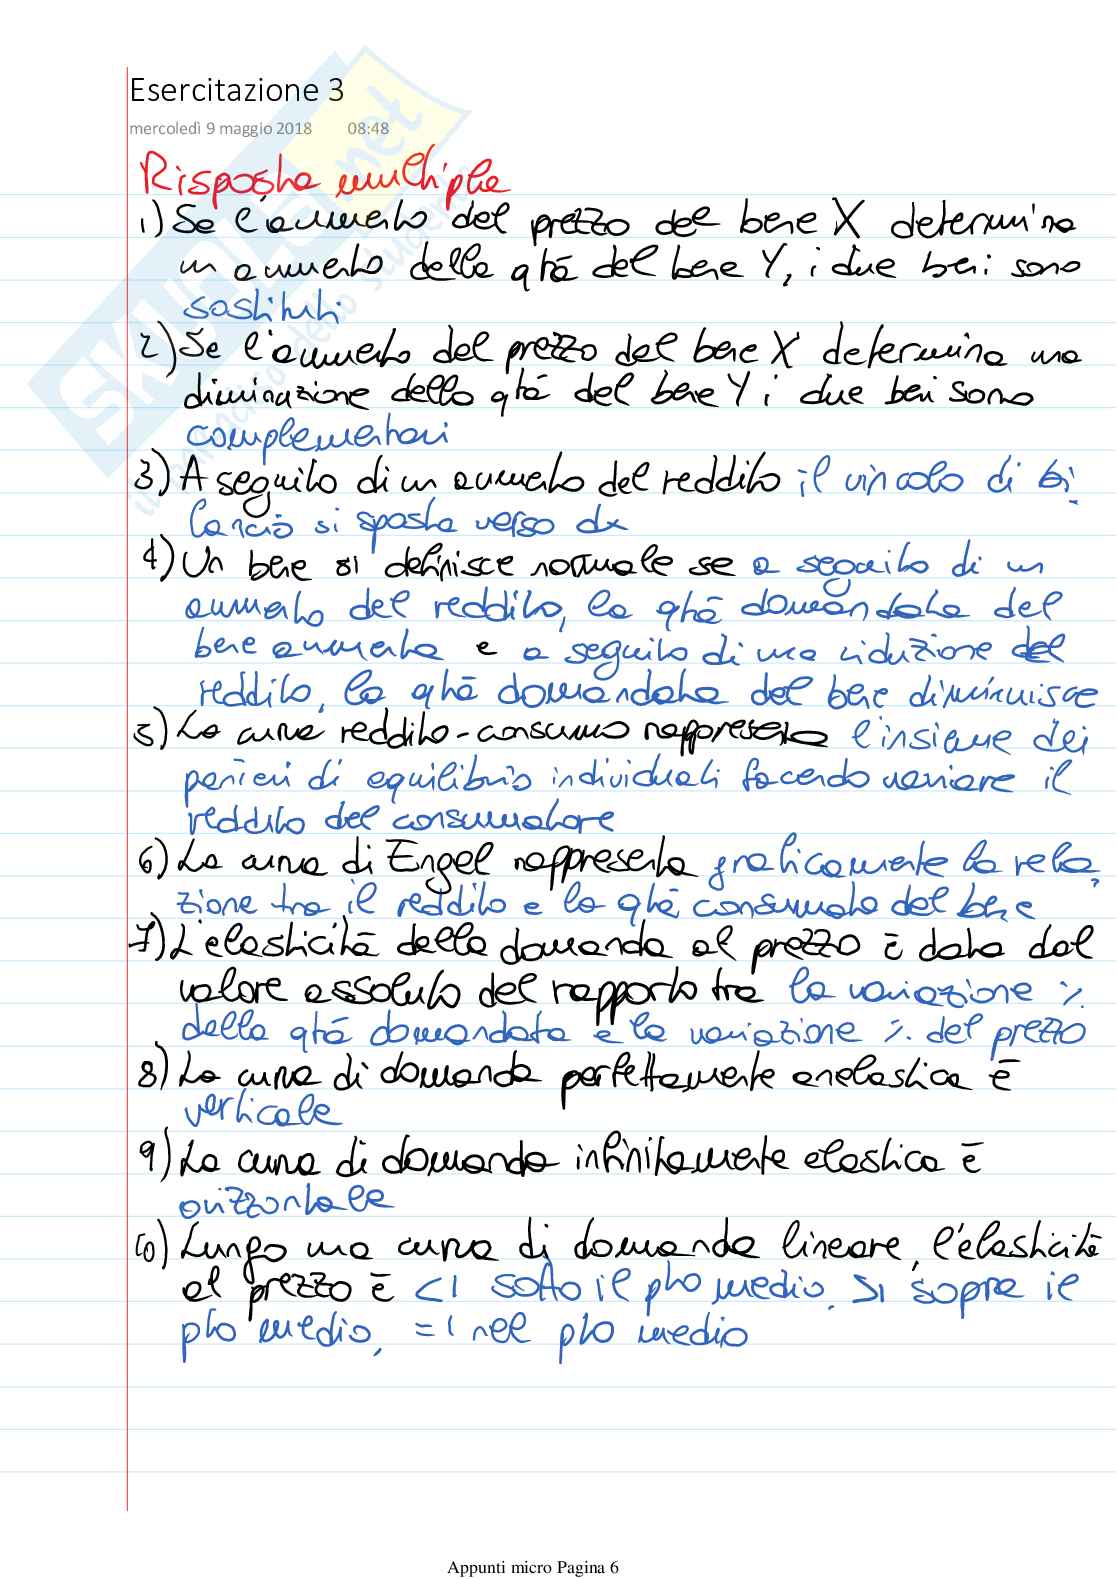 Esercitazione 3
mercoledì 9 maggio 2018 08:48
Risposte multiple
1) Se l'aumento del prezzo del bene X determina
un aumento della qtà del bene Y, i due beni sono
sostituti
2) Se l'aumento del prezzo del bene X determina una
diminuzione della qtà del bene Y i due beni sono
complementari
3) A seguito di un aumento del reddito il vincolo di bi
lancio si sposta verso dx
4) Un bene si definisce normale se a seguito di un
aumento del reddito, la qtà domandata del
bene aumenta e a seguito di una riduzione del
reddito, la qtà domandata del bene diminuisce
5) La curva reddito-consumo rappresenta l'insieme dei
panieri di equilibrio individuali facendo variare il
reddito del consumatore
6) La curva di Engel rappresenta graficamente la rela
zione tra il reddito e la qtà consumata del bene
7) L'elasticità della domanda al prezzo è data dal
valore assoluto del rapporto tra la variazione %
della qtà domandata e la variazione % del prezzo
8) La curva di domanda perfettamente anelastica è
verticale
9) La curva di domanda infinitamente elastica è
orizzontale
10) Lungo una curva di domanda lineare, l'elasticità
al prezzo è <1 sotto il pto medio, >1 sopra il
pto medio, =1 nel pto medio
Appunti micro Pagina 6